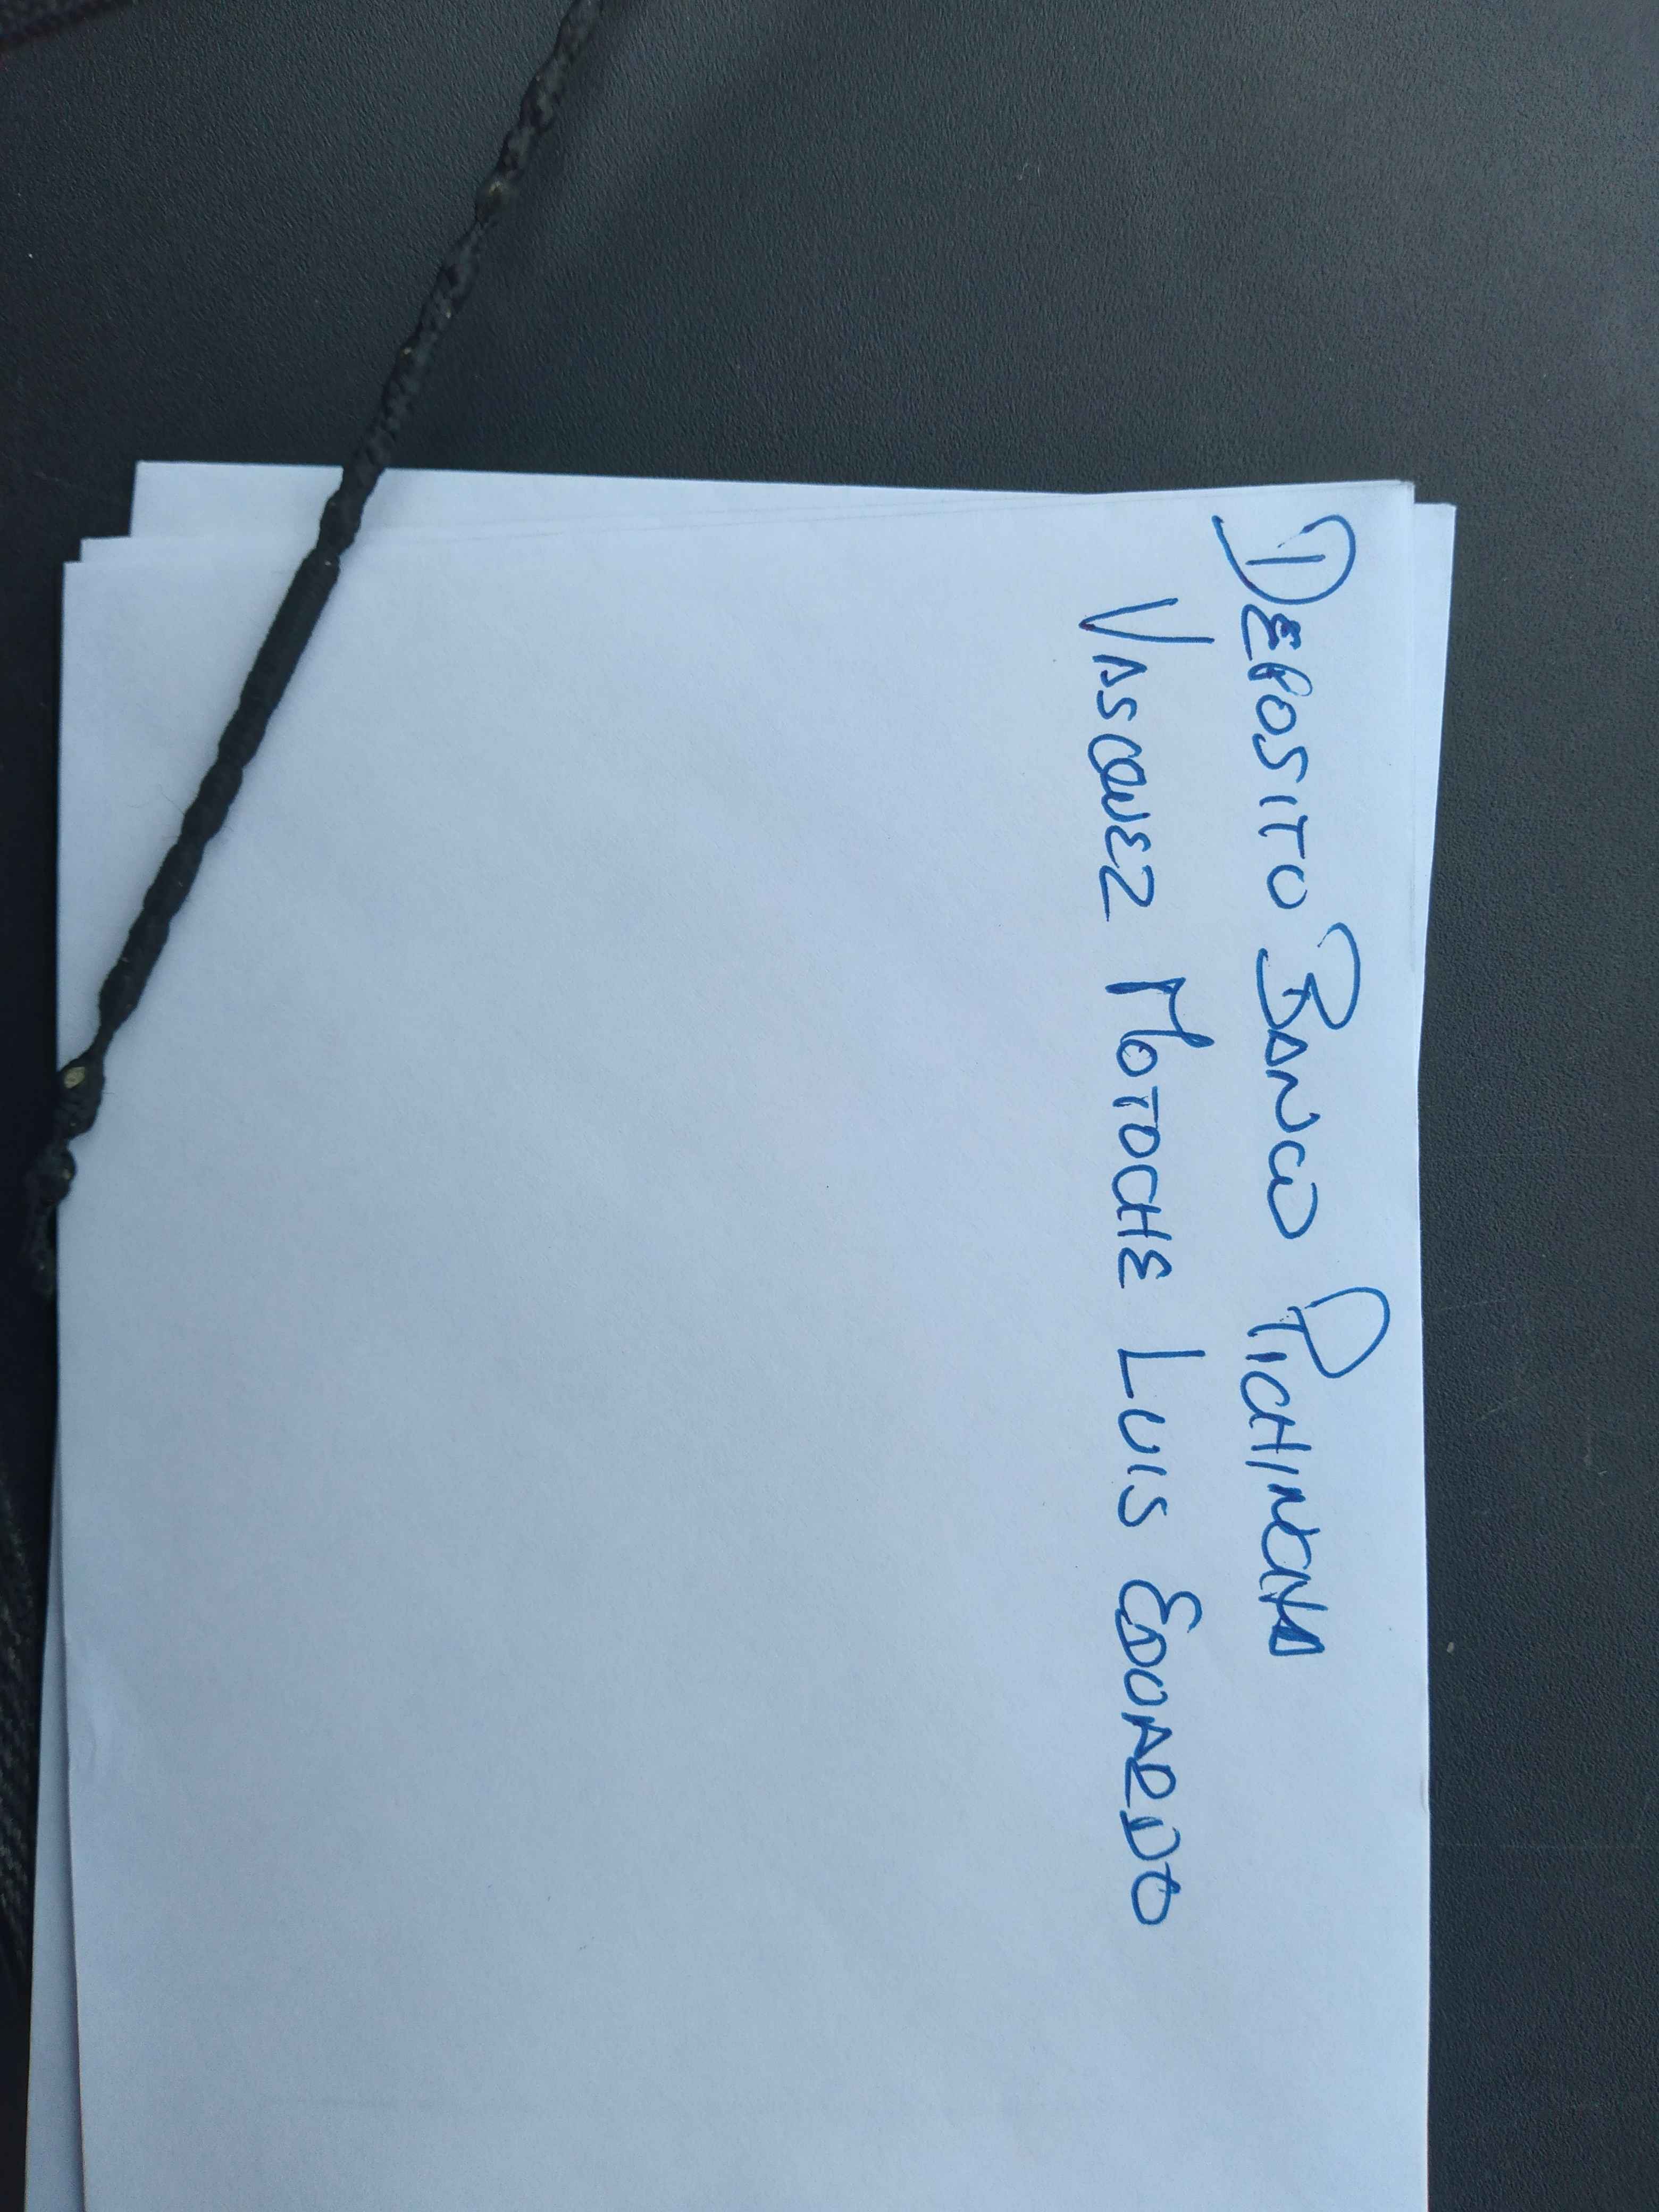 DEPOSITO BANCO PICHINCHA
VASQUEZ MOTOCHE LUIS EDUARDO